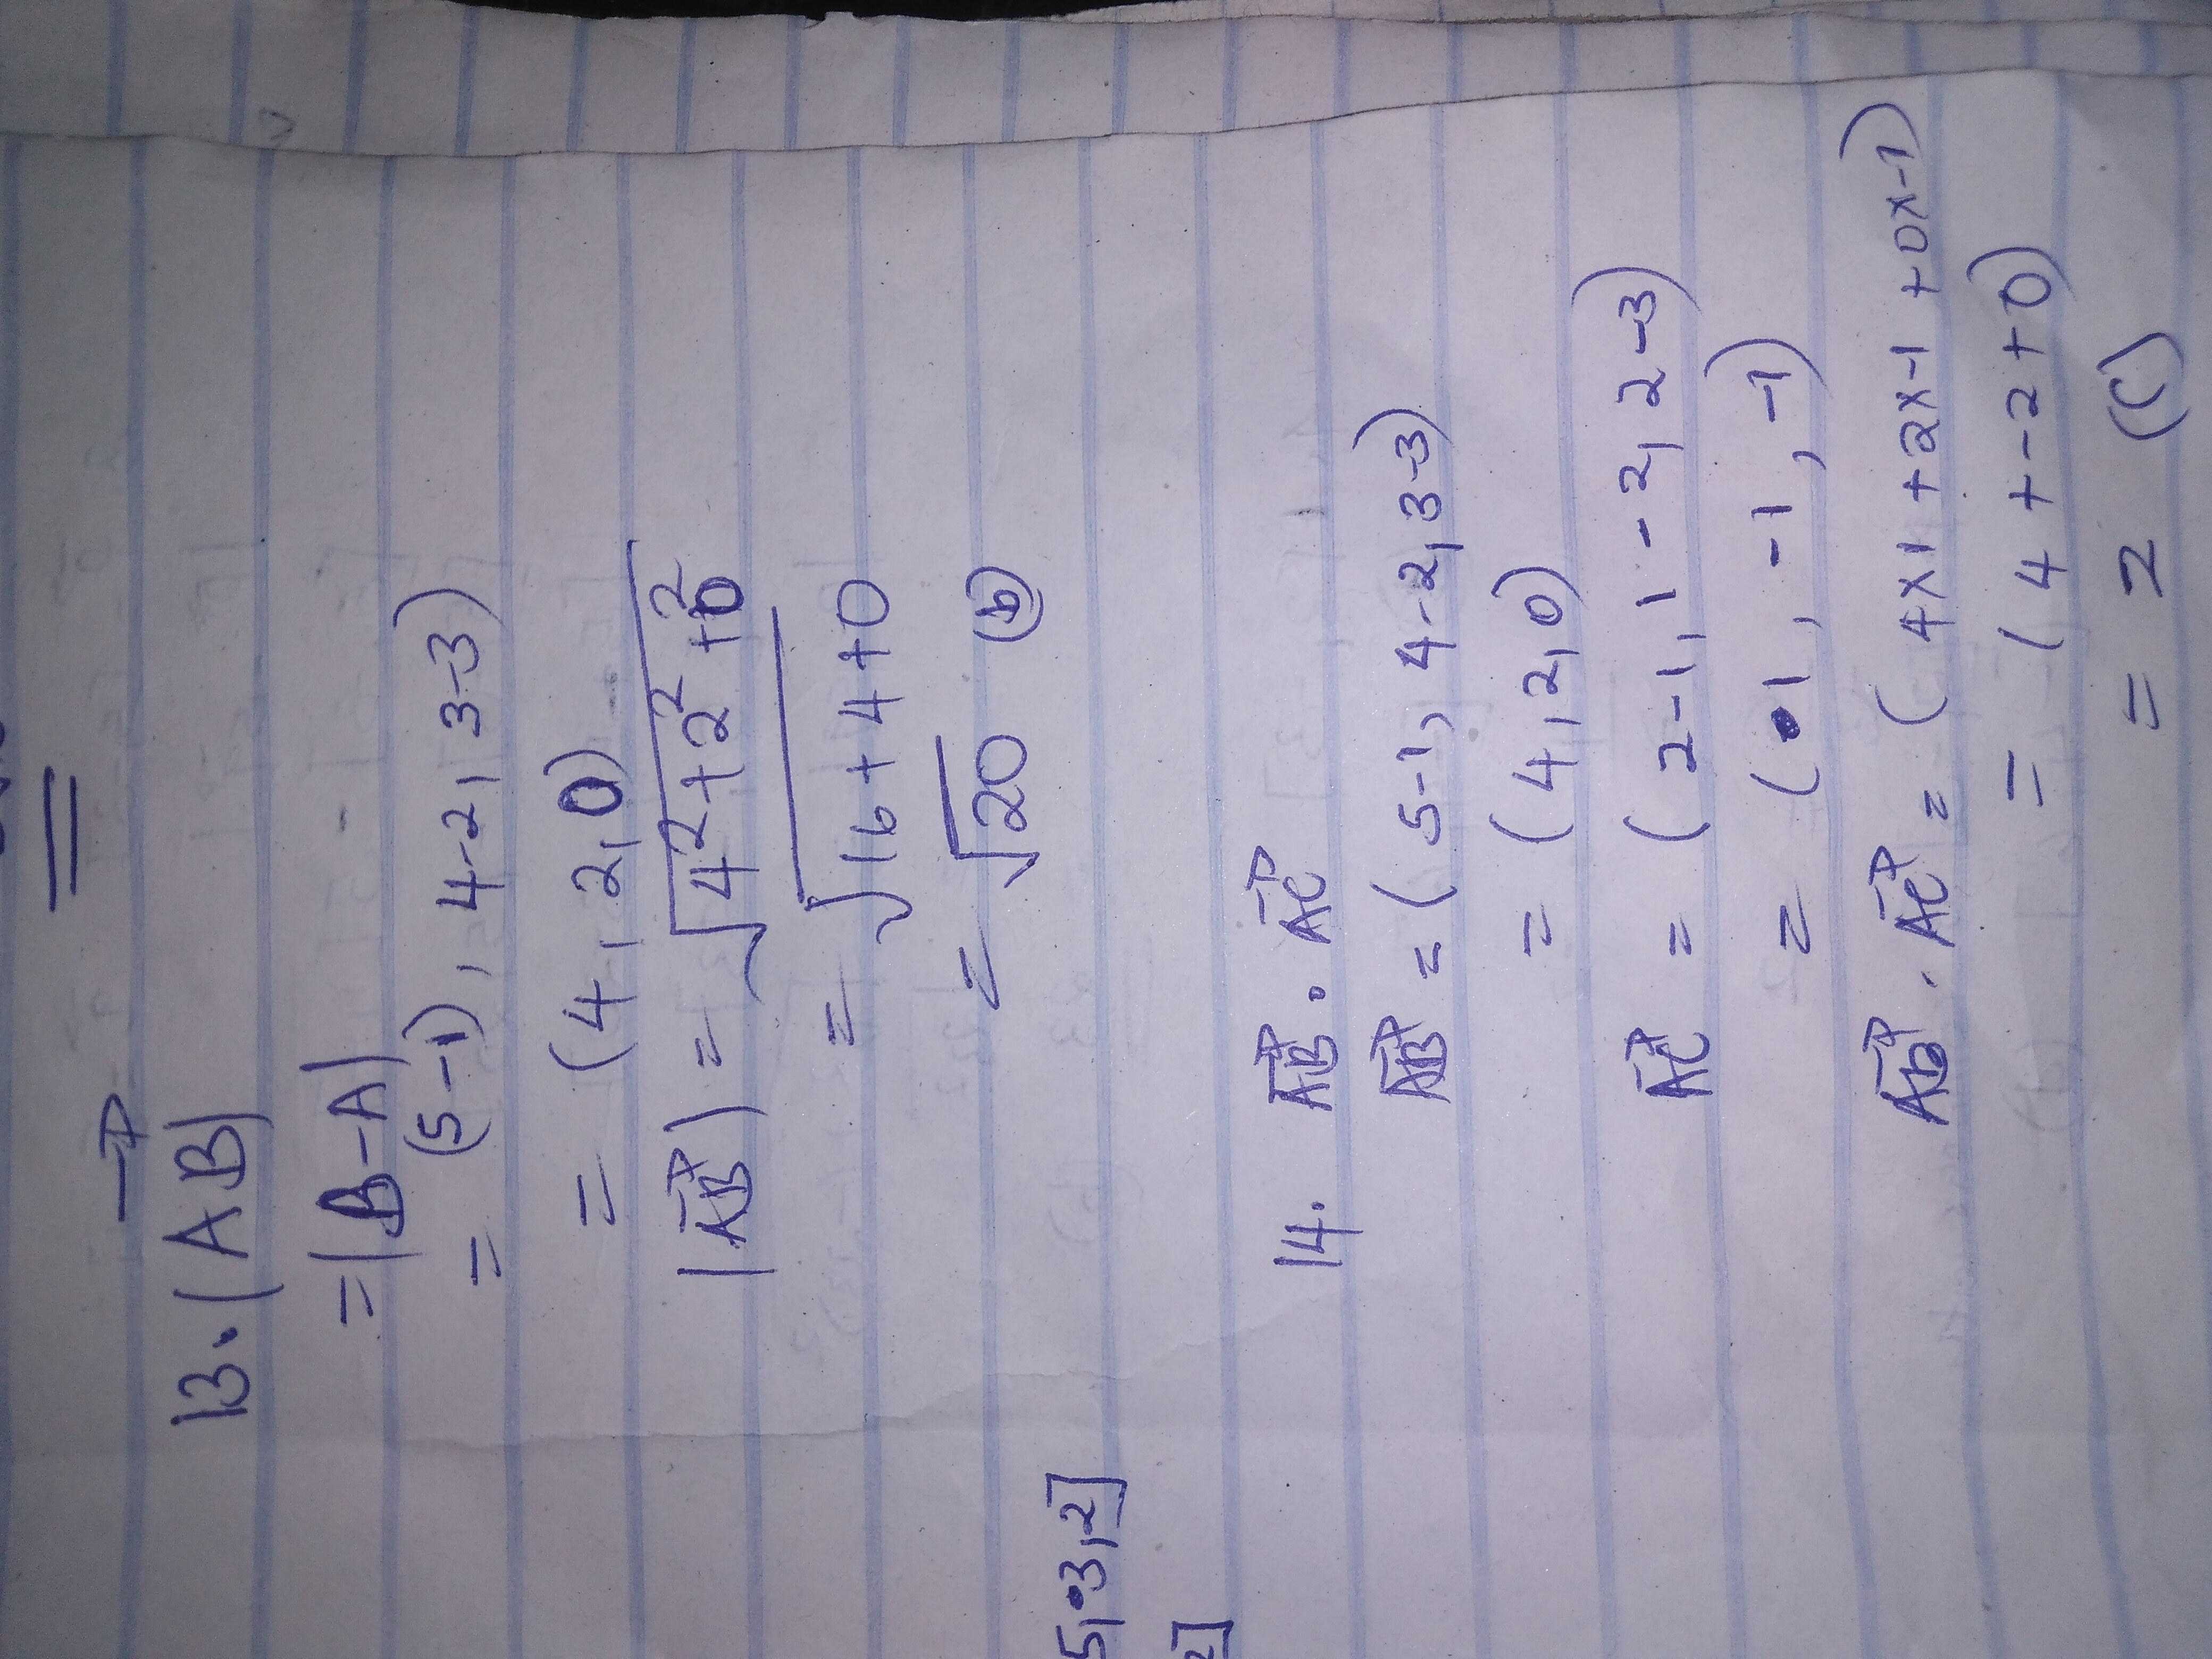 13. |AB|
= |B-A|
= (5-1), 4-2, 3-3)
= (4, 2, 0)
|AB| = √4²+2²+0²
= √16+4+0
= √20 (b)
5, 3, 2]
2]
14. AB . AC
AB = (5-1, 4-2, 3-3)
= (4, 2, 0)
AC = (2-1, 1-2, 2-3)
= (1, -1, -1)
AB . AC = (4x1 + 2x-1 + 0x-1)
= (4 + -2 + 0)
= 2 (C)